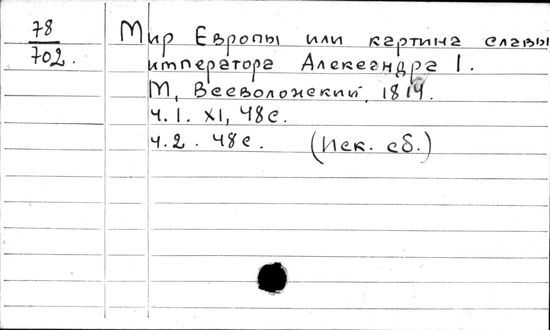 78
702.
Мир Европы или картина славы
императора Александра I.
М, Всеволожский, 1814.
ч.1. XI, 48с.
ч.2. 48с. (Иск. сб.)